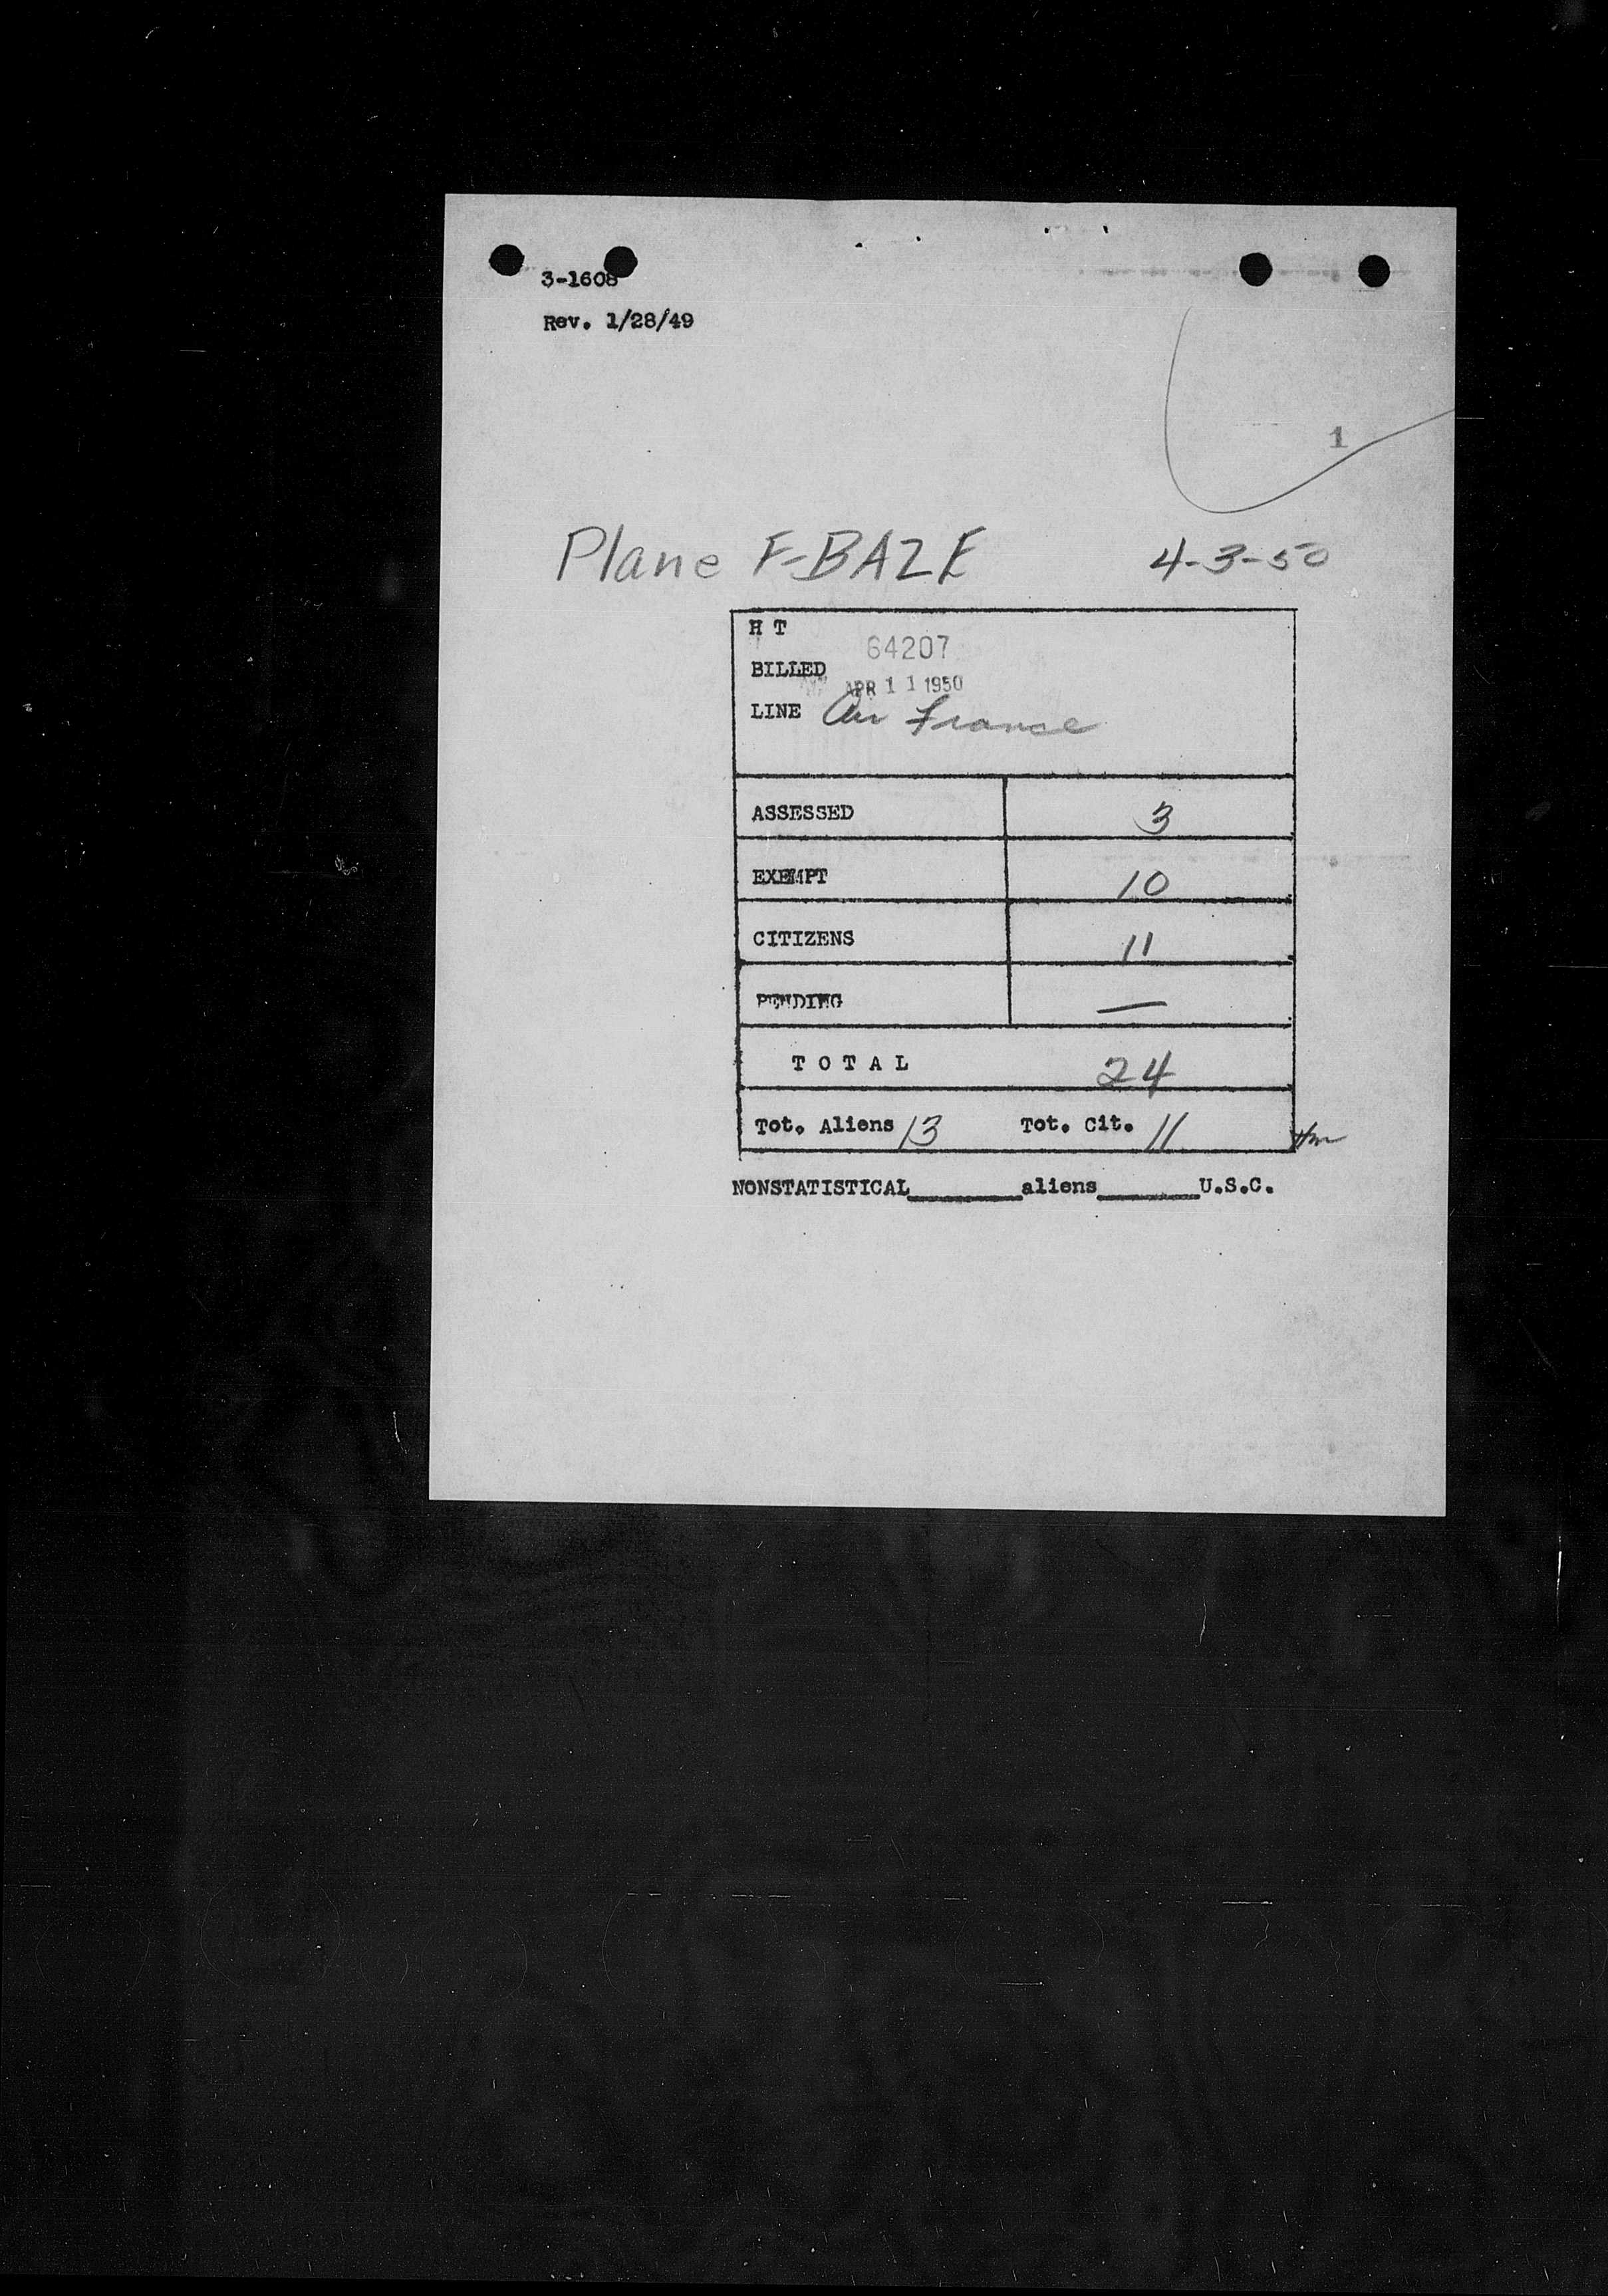 3-1608
Rev. 1/28/49
1
Plane F-BAZE 4-3-50
H T 64207
BILLED APR 11 1950
LINE Air France
ASSESSED 3
EXEMPT 10
CITIZENS 11
PENDING —
TOTAL 24
Tot. Aliens 13 Tot. Cit. 11
NONSTATISTICAL________aliens_______U.S.C.